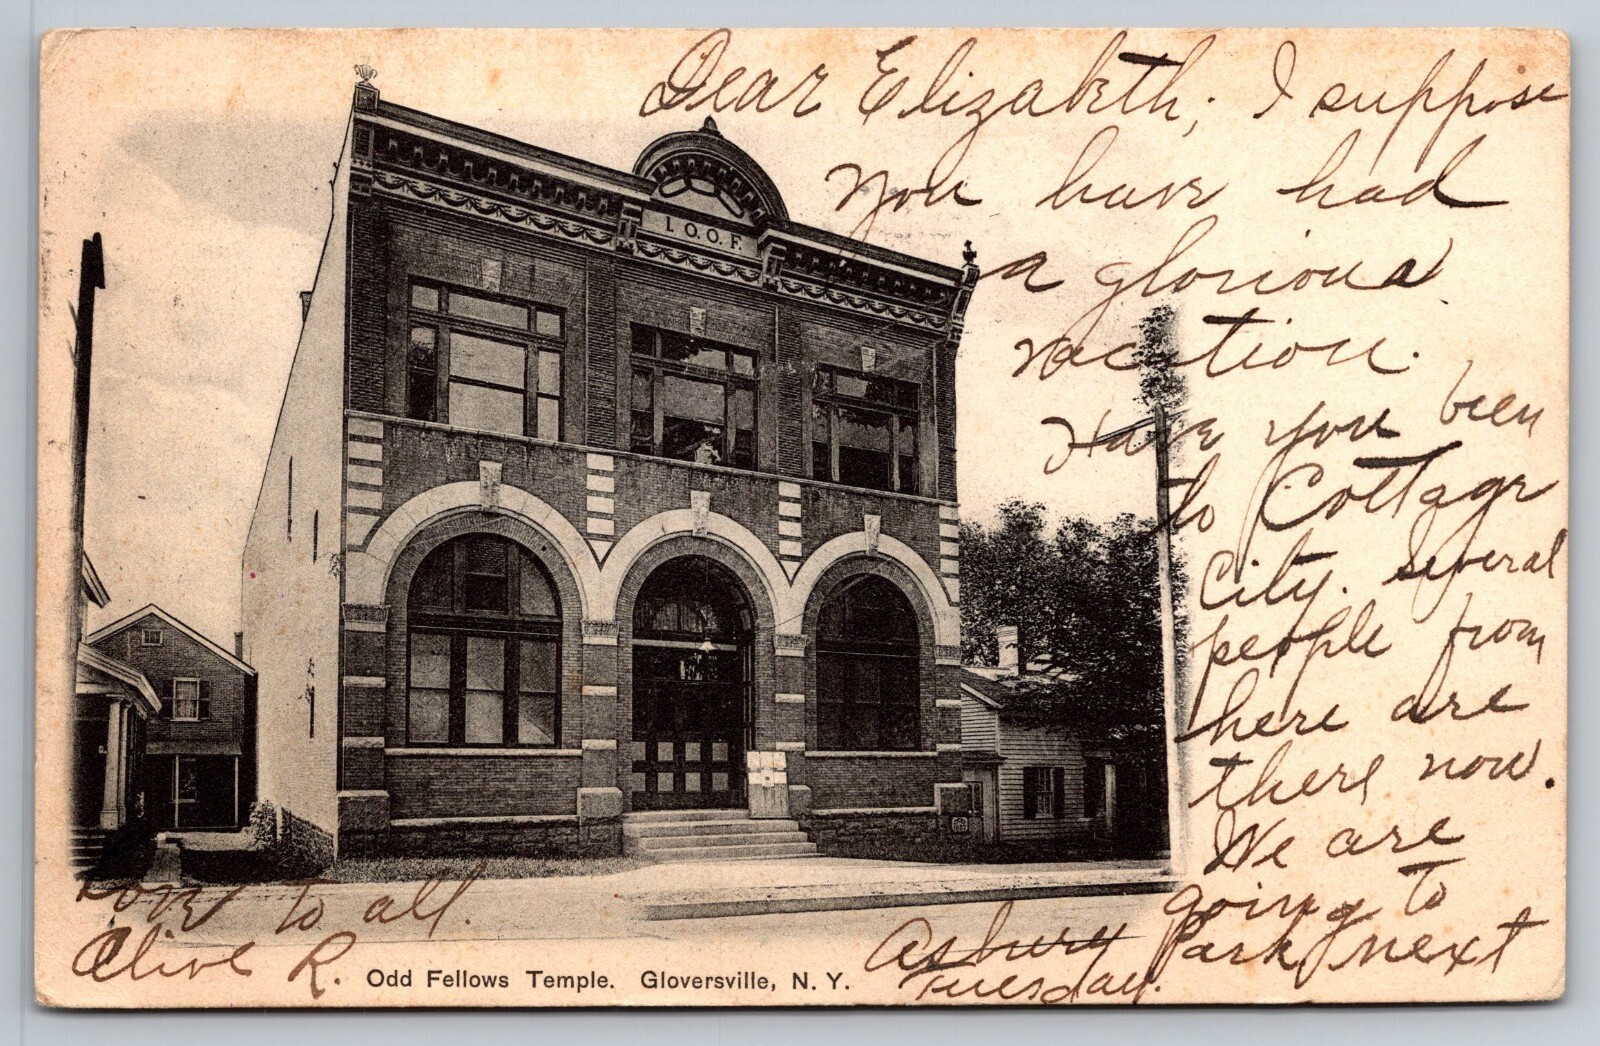 Dear Elizabeth; I suppose
you have had
a glorious
vacation.
Have you been
to Cottage
City. Several
people from
here are
there now.
We are
going to
Asbury Park next
Tuesday.
Love to all.
Olive R.
I.O.O.F.
Odd Fellows Temple. Gloversville, N. Y.